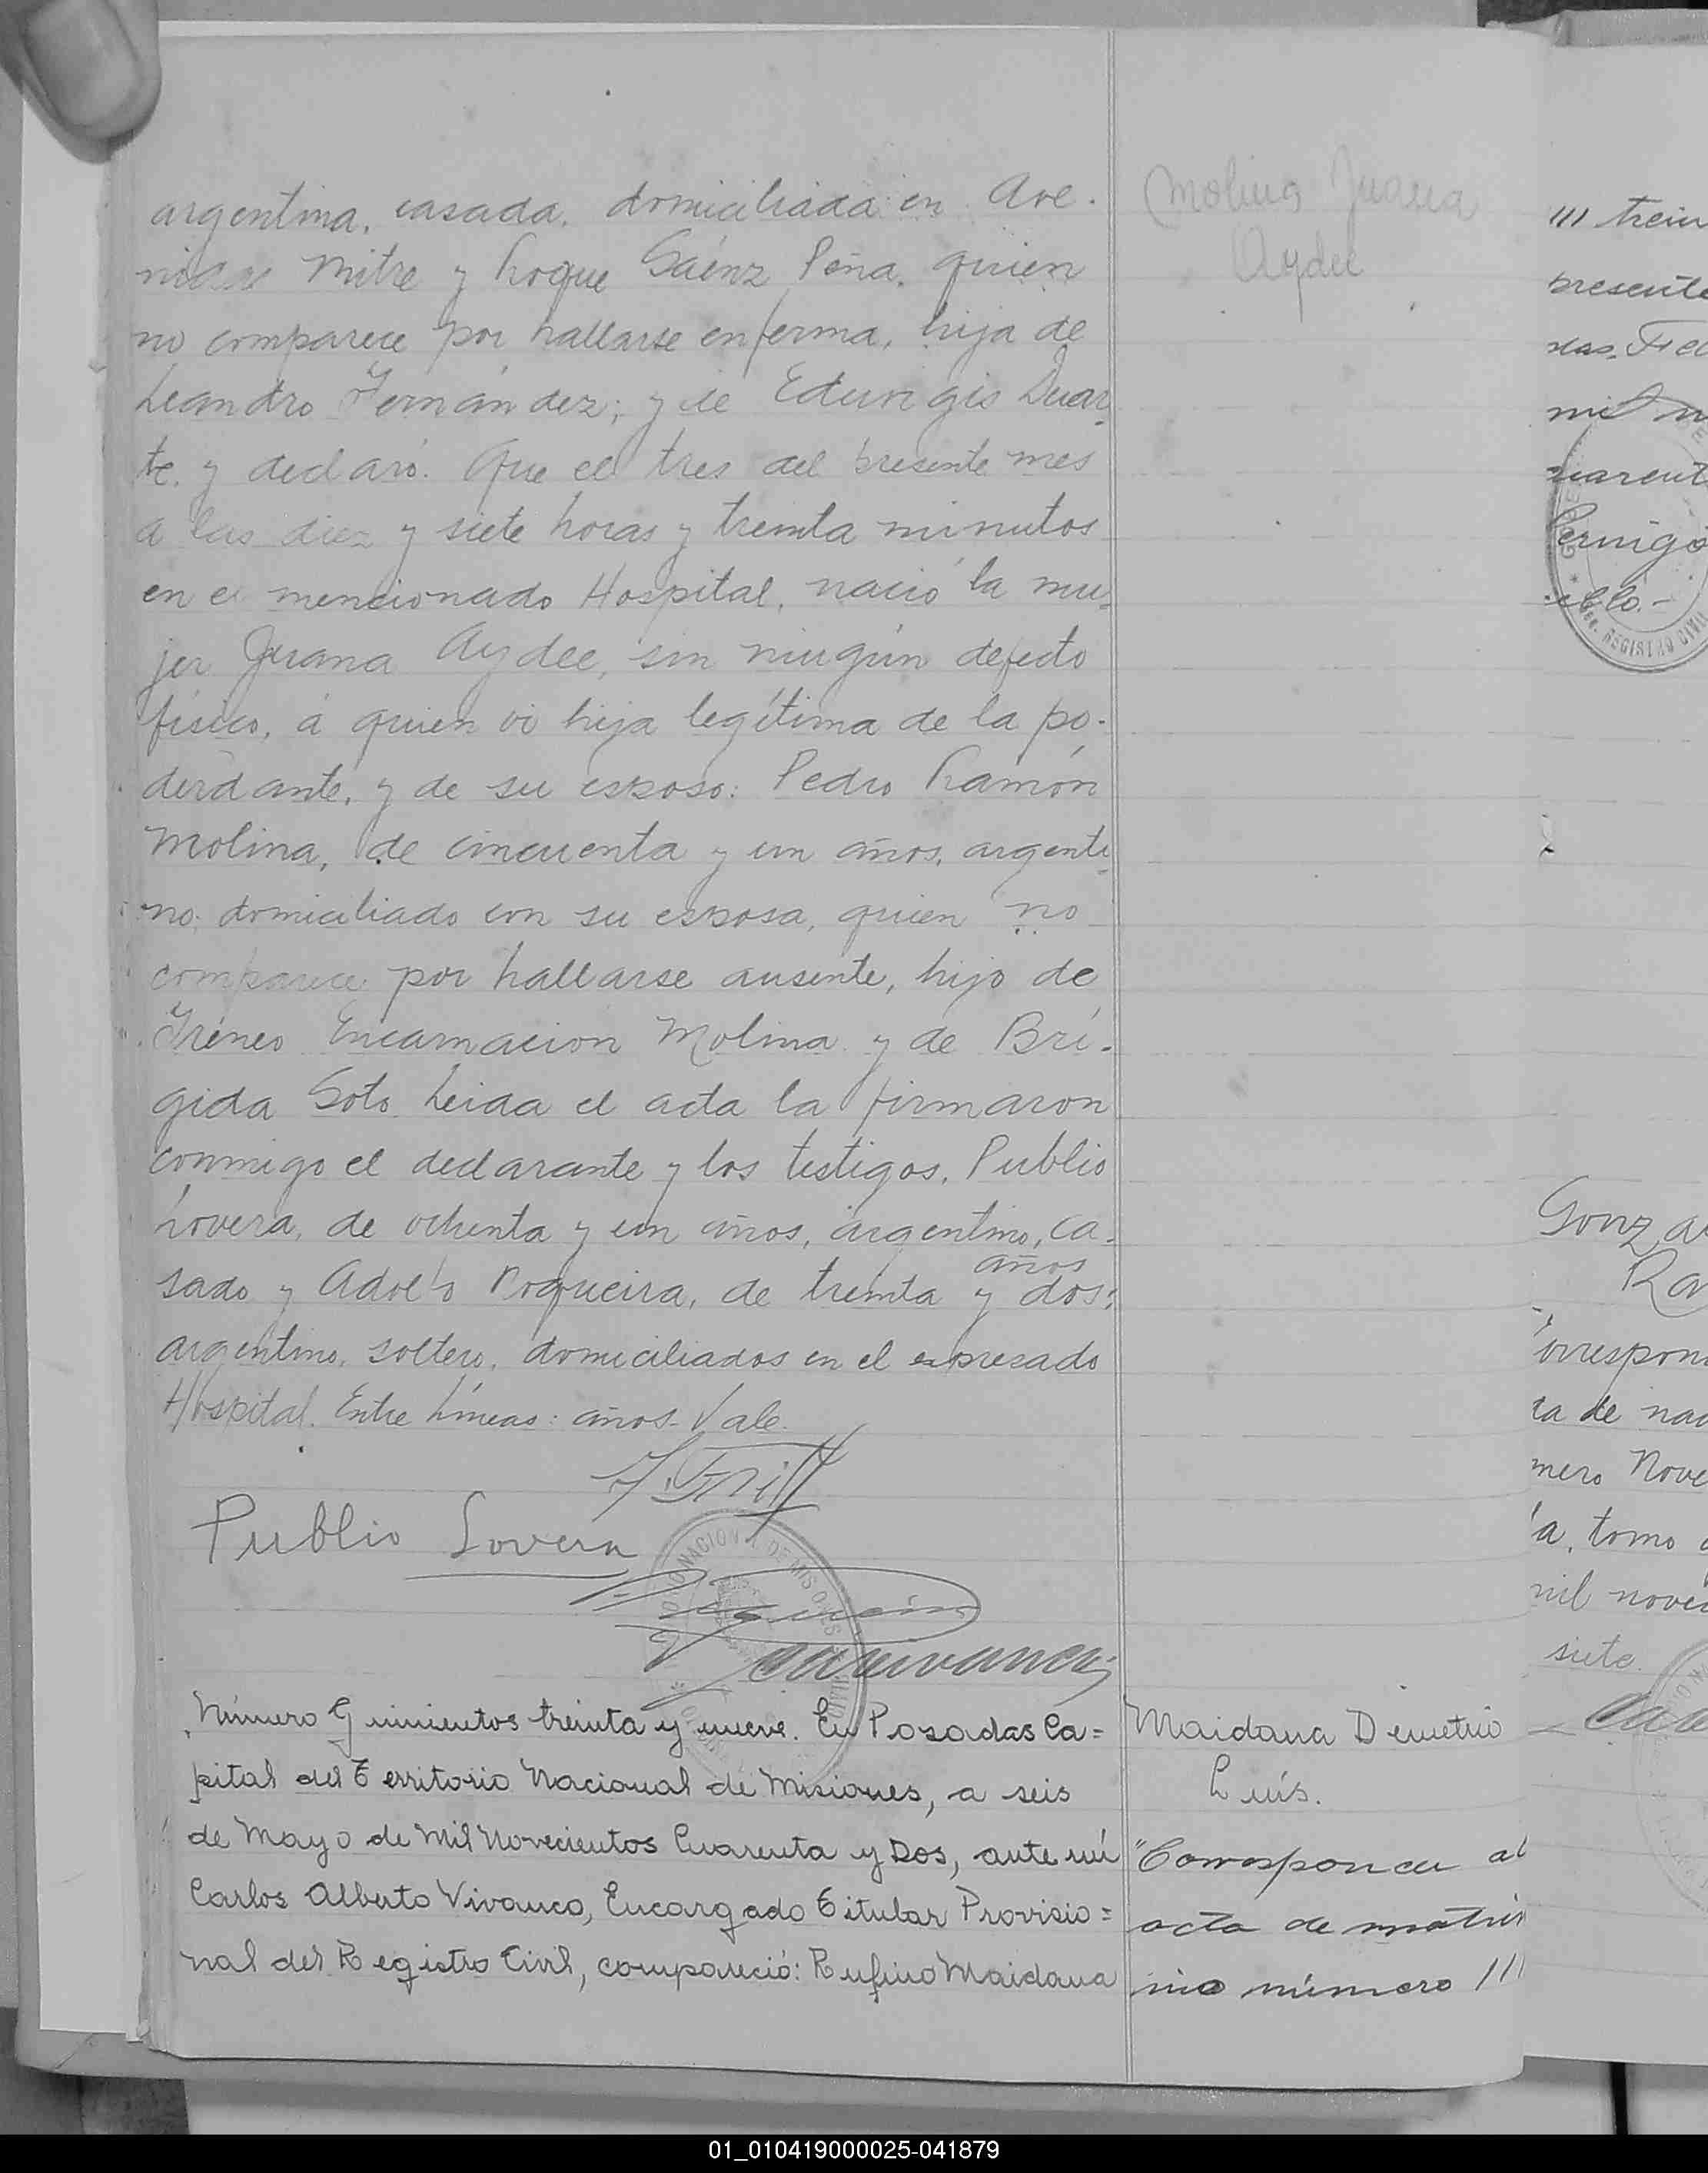 argentina, casada, domiciliada en Ave-
nidas Mitre y Roque Sáenz Peña, quien
no comparece por hallarse enferma, hija de
Leandro Fernández; y de Eduvigis Duar-
te, y declaró: Que el tres del presente mes
a las diez y siete horas y treinta minutos
en el mencionado Hospital, nació la mu-
jer Juana Aydee, sin ningún defecto
físico, á quien vi hija legítima de la po-
derdante, y de su esposo: Pedro Ramón
Molina, de cincuenta y un años, argenti-
no, domiciliado con su esposa, quien no
comparece por hallarse ausente, hijo de
Iréneo Encarnacion Molina y de Brí-
gida Soto. Leida el acta la firmaron
conmigo el declarante y los testigos, Publio
Lovera, de ochenta y un años, argentino, ca-
años
sado y Adolfo Noqueira, de treinta y dos,
argentino, soltero, domiciliados en el expresado
Hospital. Entre Líneas: años-Vale.
Publio Lovera
Número Quinientos treinta y nueve. En Posadas Ca=
pital del Territorio Nacional de Misiones, a seis
de Mayo de Mil Novecientos Cuarenta y Dos, ante mí
Carlos Alberto Vivanco, Encargado Titular Provisio=
nal del Registro Civil, compareció: Rufino Maidana
Molina Juana
Aydee
Maidana Demetrio
Luís.
"Corresponde al
acta de matrim
nio número ///
/// trein
presente
das, Fe
mil n
cuarent
REGISTRO CIVIL
Gonz
Ra
orrespon
ta de nac
mero Nove
a, tomo
mil nove
siete.
01_010419000025-041879